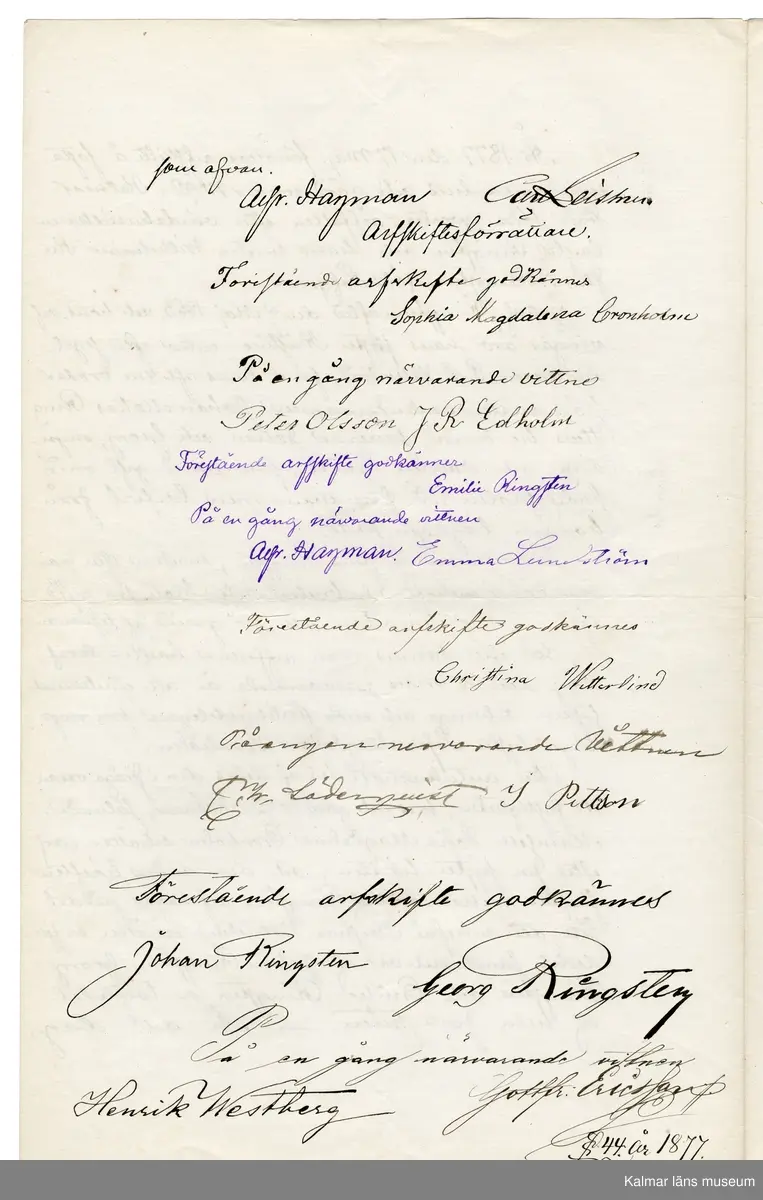 som ofvan.
Alfr. Hagman Carl Leistner
Arfskiftesförrättare.
Föreståënde arfskifte godkännes
Sophia Magdalena Cronholm
På en gång närvarande vittne
Peter Olsson J R Edholm
Föreståënde arfskifte godkännes
Emilie Ringsten
På en gång närvarande vittnen
Alfr. Hagman. Emma Lundström
Föreståënde arfskifte godkännes
Christina Wetterlind
På en gon nervarande Vittnen
Söderqvist J Pettson
Föreståënde arfskifte godkännes
Johan Ringsten
Georg Ringsten
På en gång närvarande vittnen
Henrik Westberg Gottfr. Ericsson
§ 44. år 1877.
Kalmar läns museum